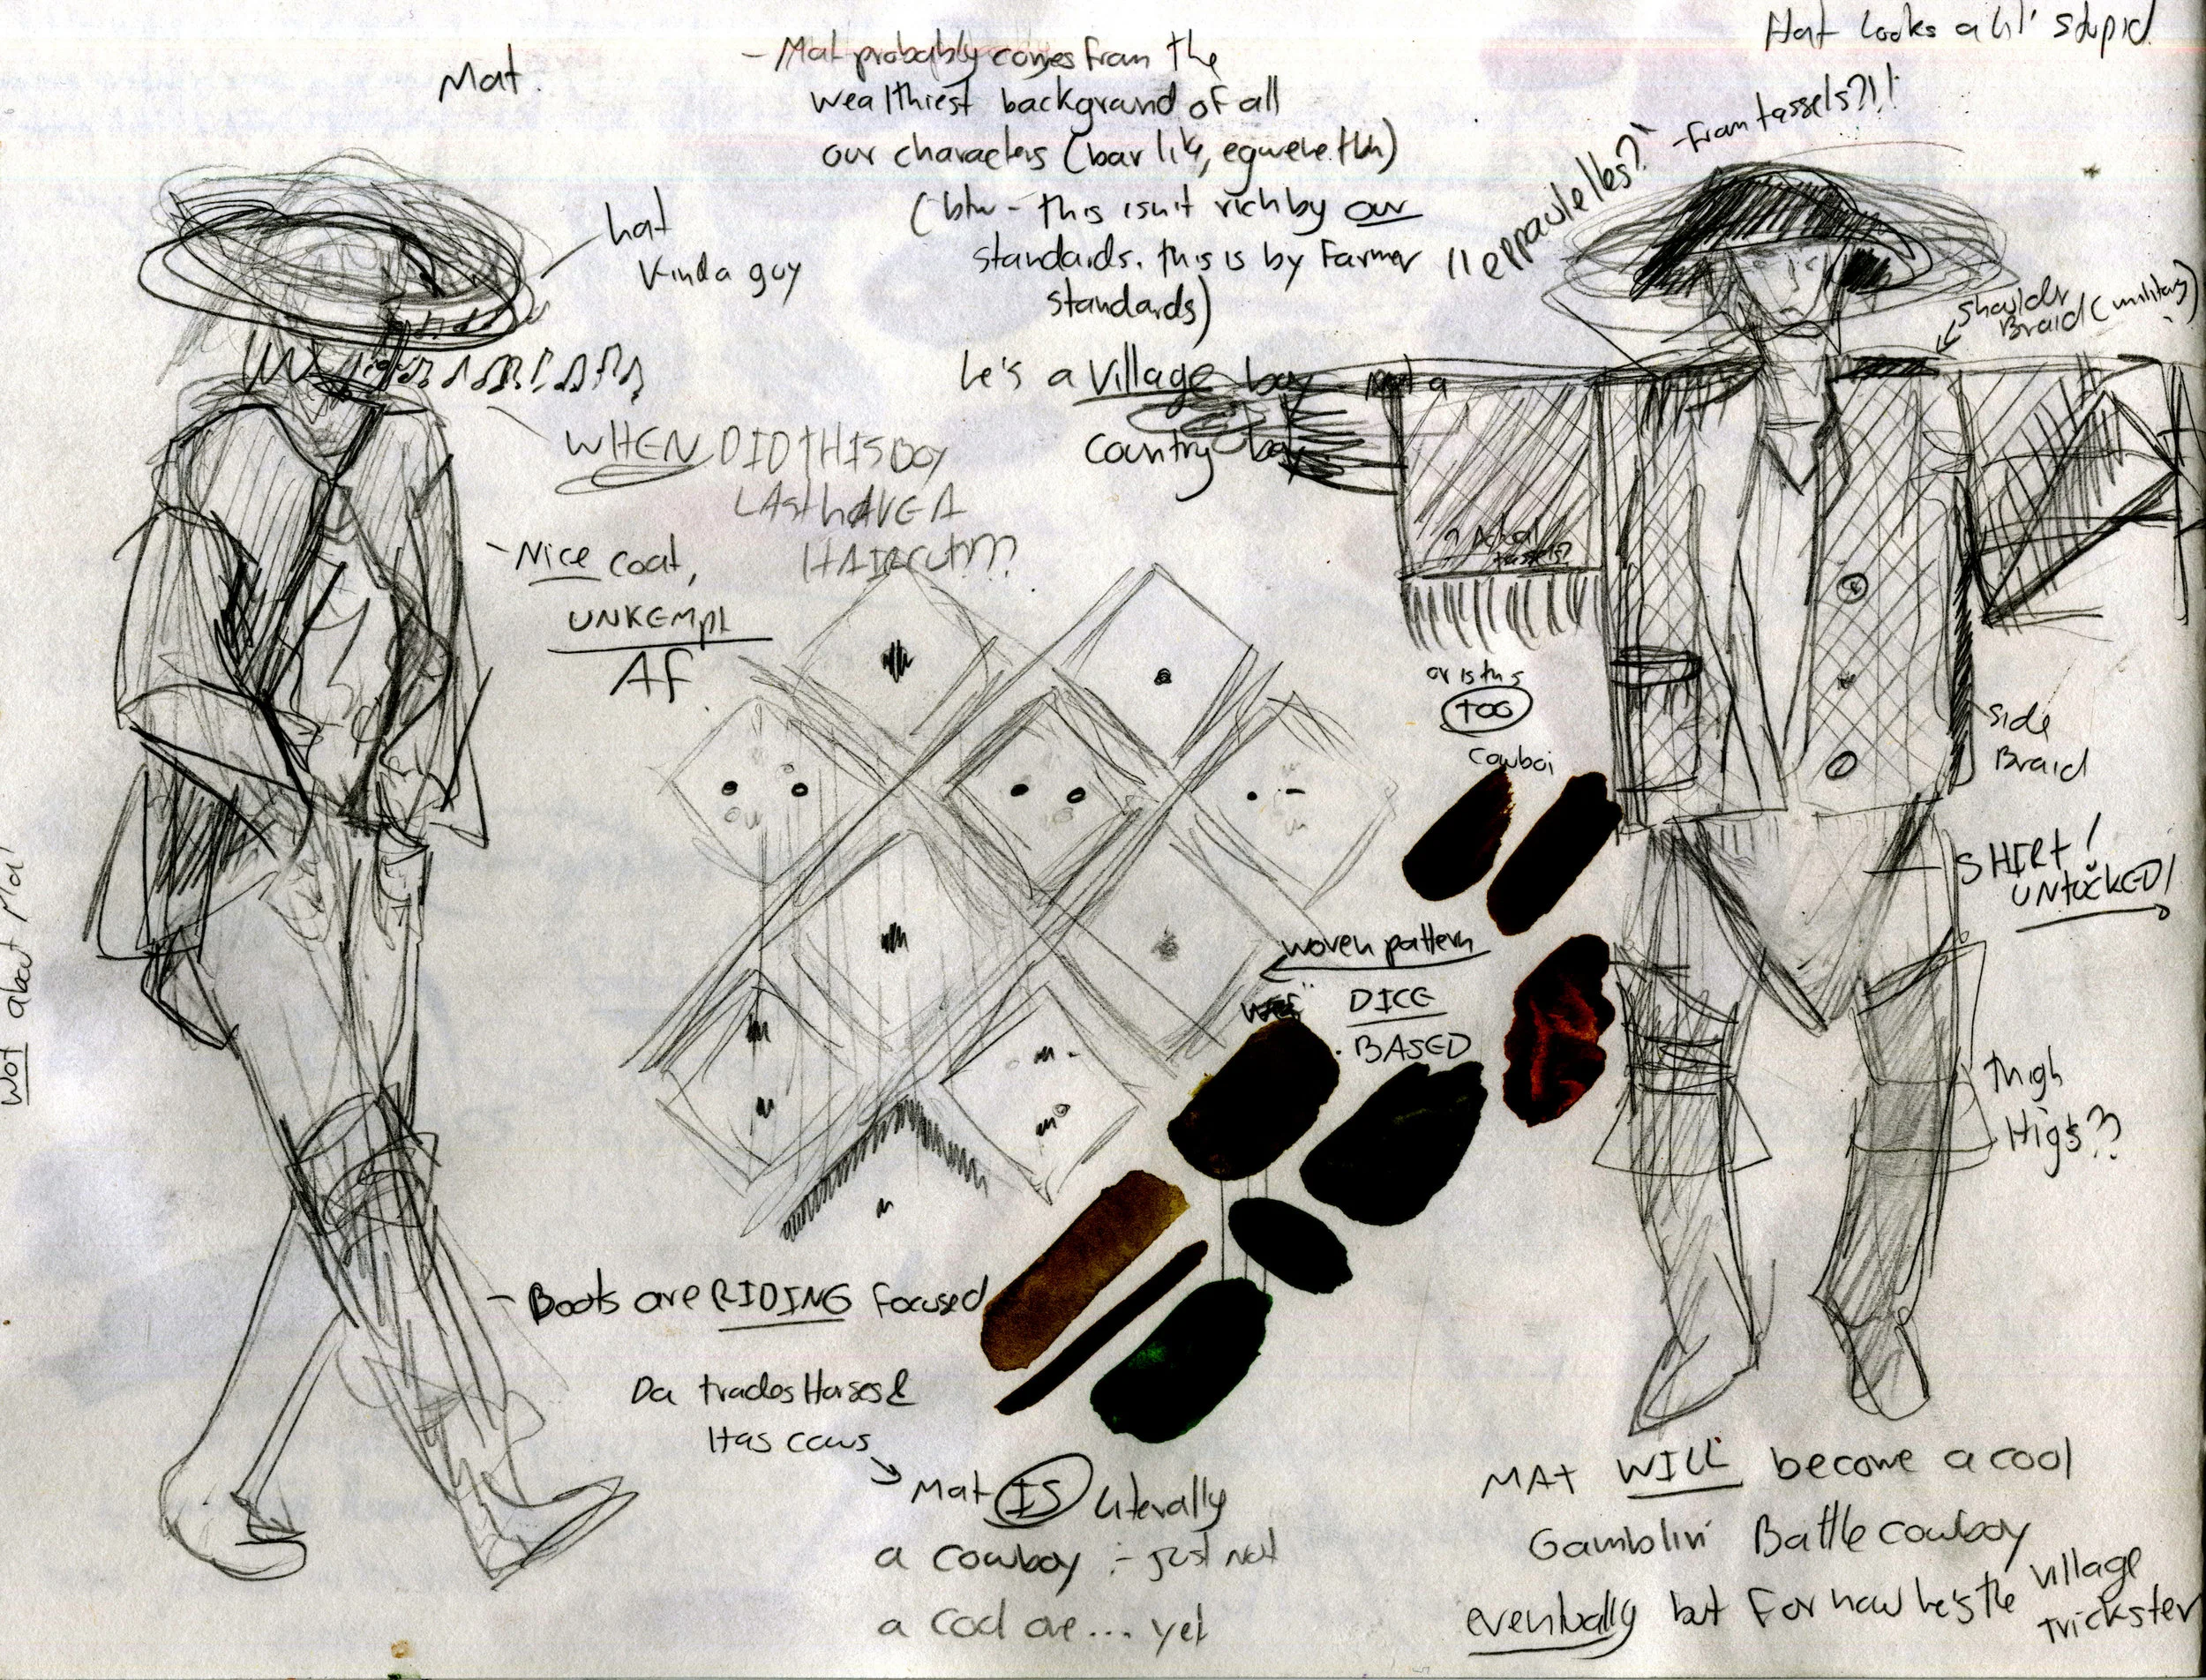 Mat.
- Mat probably comes from the
wealthiest background of all
our characters (bar like, egwene tbh)
(btw - this isn't rich by our
standards. this is by Farmer
standards)
he's a village boy not a
country boy
Hat looks a lil' stupid
"eppaulelles?" -from tassels?!!
hat
Kinda guy
Shoulder
Braid (military)
WHEN DID THIS BOY
LAST HAVE A
HAIRCUT???
- Nice coat,
UNKEMPT
AF
? Actual
tassels?
or is this
TOO
cowboi
Side
Braid
SHIRT!
UNTUCKED!
woven pattern
DICE
BASED
Thigh
Highs??
Wot about Mat
- Boots are RIDING Focused
Da trades Horses &
Has cows
Mat IS literally
a cowboy - just not
a cool one... yet
MAt WILL become a cool
Gamblin' Battle cowboy
eventually but For now he's the village
trickster